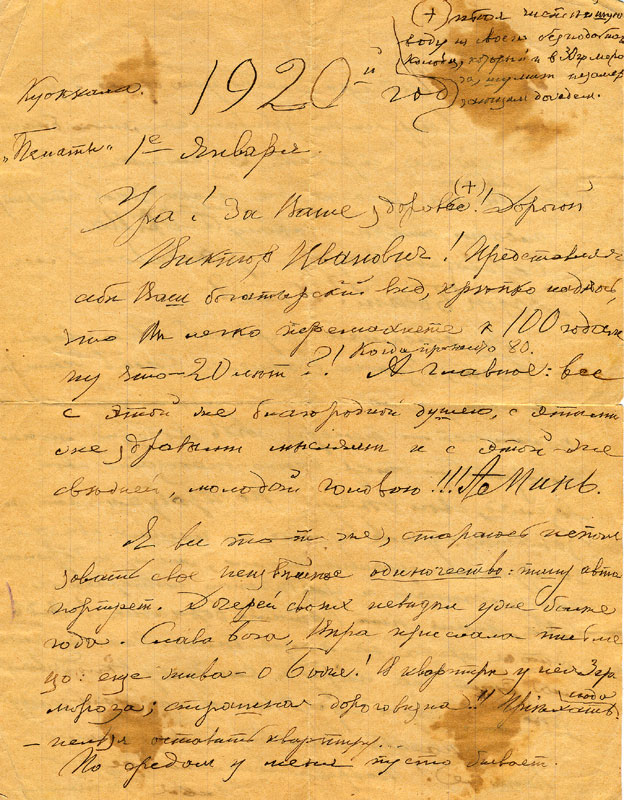 (+) пью чистейшую
воду из своего
колодца, который и в 30гр. моро
за, шумит незамер
зающим дождем.
Куоккала.
1920й год
„Пенаты“ 1е января.
Ура! За Ваше здоровье (+)! Дорогой
Виктор Иванович! Представляя
себе Ваш богатырский вид, крепко надеюсь,
что Вы легко перемахнете к 100 годам
ну что - 20 лет?! Когда прожито 80.
А главное: все
с этой же благородной душею, с этими
же здравыми мыслями и с этой-же
свежей, молодой головою!!! Аминь.
Я все тот же, стараюсь исполь
зовать свое одиночество: пишу авто
портрет. Дочерей своих невидел уже более
года. Слава Бога, Вера прислала письме
цо: еще жива - о Боже! В квартире у нея 3гр.
мороза; страшная дороговизна!! Приехать сюда
- нельзя оставить квартиру...
По средам у меня пусто бывает.